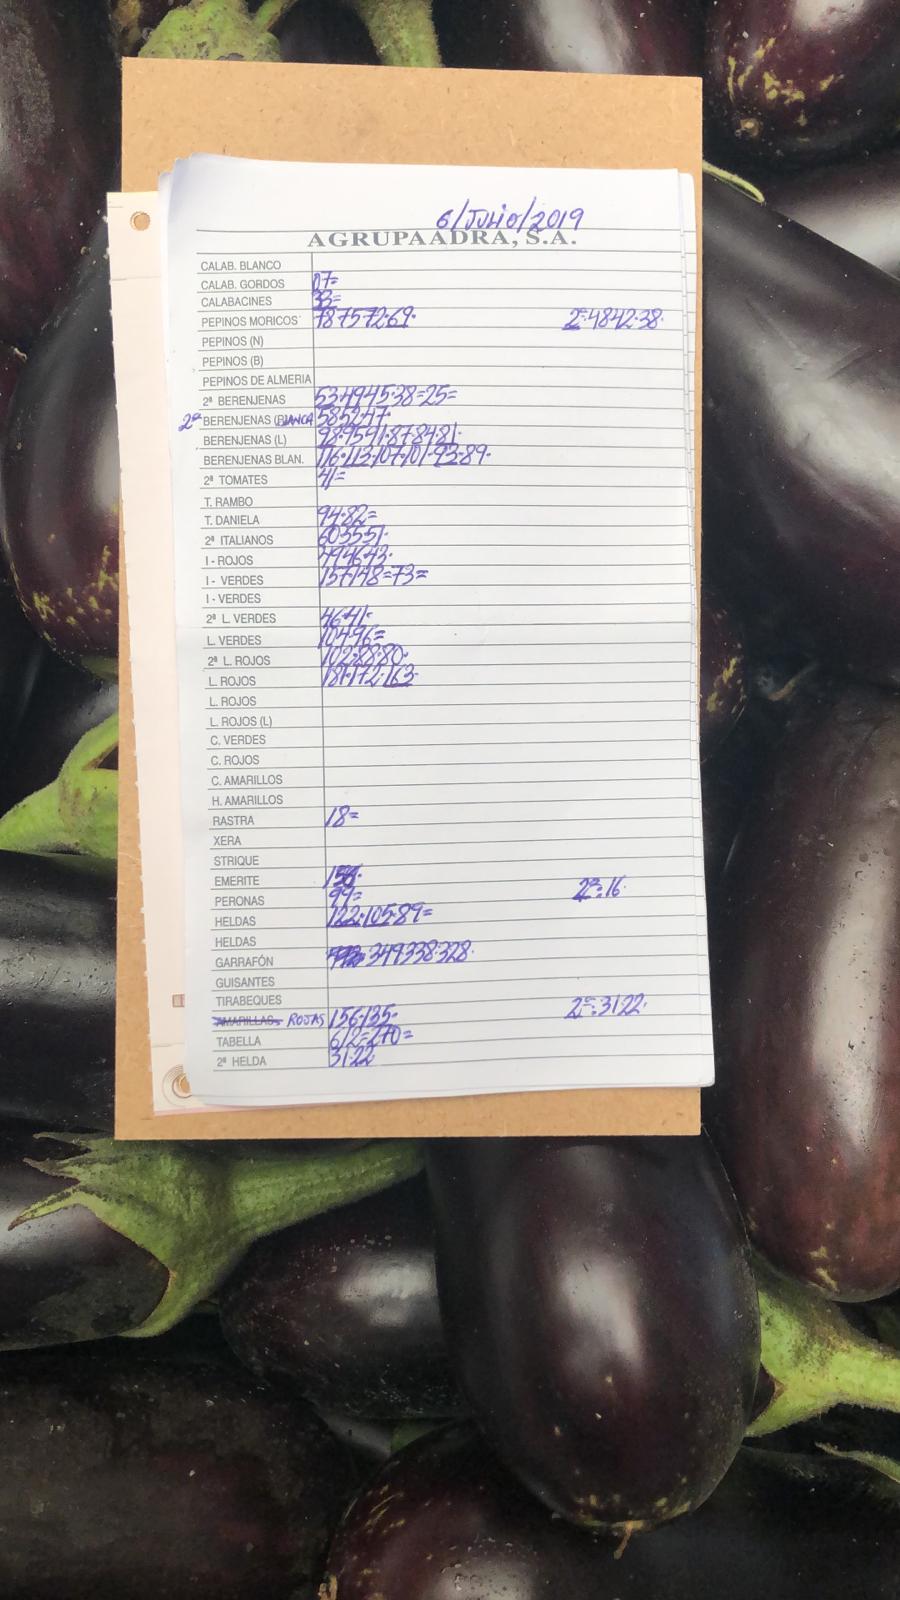 6/JULIO/2019
AGRUPAADRA, S.A.
CALAB. BLANCO
CALAB. GORDOS 07=
CALABACINES 33=
PEPINOS MORICOS 78·75·72·69· 2ª:48·42·38·
PEPINOS (N)
PEPINOS (B)
PEPINOS DE ALMERIA
2ª BERENJENAS 53·49·45·38=25=
2ª BERENJENAS (BLANCA 58·52·47·
BERENJENAS (L) 98·95·91·87·84·81·
BERENJENAS BLAN. 116·113·107·101·93·89·
2ª TOMATES 41=
T. RAMBO
T. DANIELA 94·82=
2ª ITALIANOS 60·55·51·
I - ROJOS 49·46·43·
I - VERDES 157·148=73=
I - VERDES
2ª L. VERDES 46·41·
L. VERDES 104·96=
2ª L. ROJOS 102·88·80·
L. ROJOS 181·172·163·
L. ROJOS
L. ROJOS (L)
C. VERDES
C. ROJOS
C. AMARILLOS
H. AMARILLOS
RASTRA 18=
XERA
STRIQUE
EMERITE
PERONAS 99= 2ª:16·
HELDAS 122·105·89=
HELDAS
GARRAFÓN 349·338·328·
GUISANTES
TIRABEQUES
AMARILLAS ROJAS 156·135· 2ª:31·22·
TABELLA 612=270=
2ª HELDA 31·22·